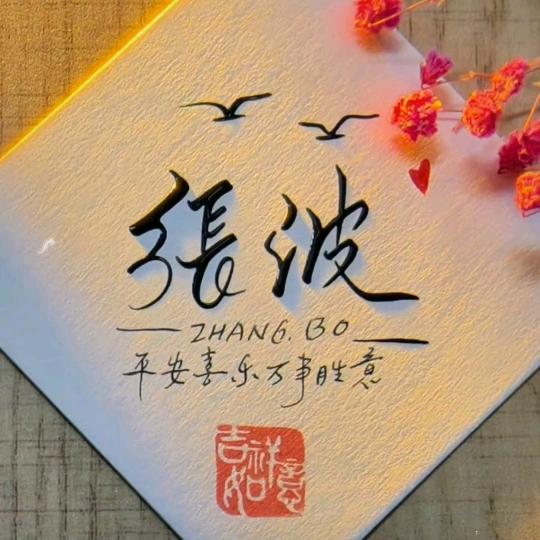 張波
ZHANG. BO
平安喜乐万事胜意
吉祥如意